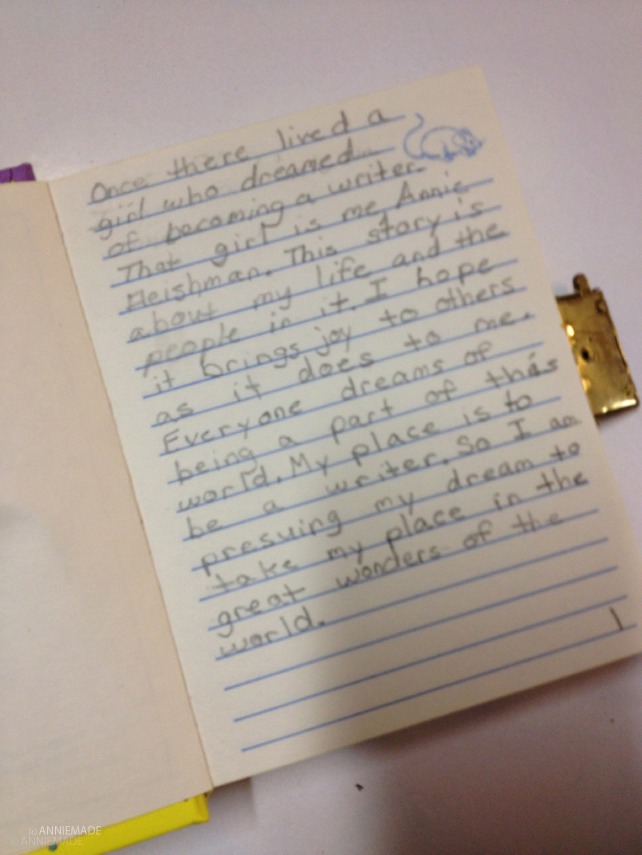 Once there lived a
girl who dreamed
of becoming a writer.
That girl is me Annie
Fleishman. This story is
about my life and the
people in it. I hope
it brings joy to others
as it does to me.
Everyone dreams of
being a part of this
world. My place is to
be a writer. So I am
presuing my dream to
take my place in the
great wonders of the
world.
1
ANNIEMADE
© ANNIEMADE